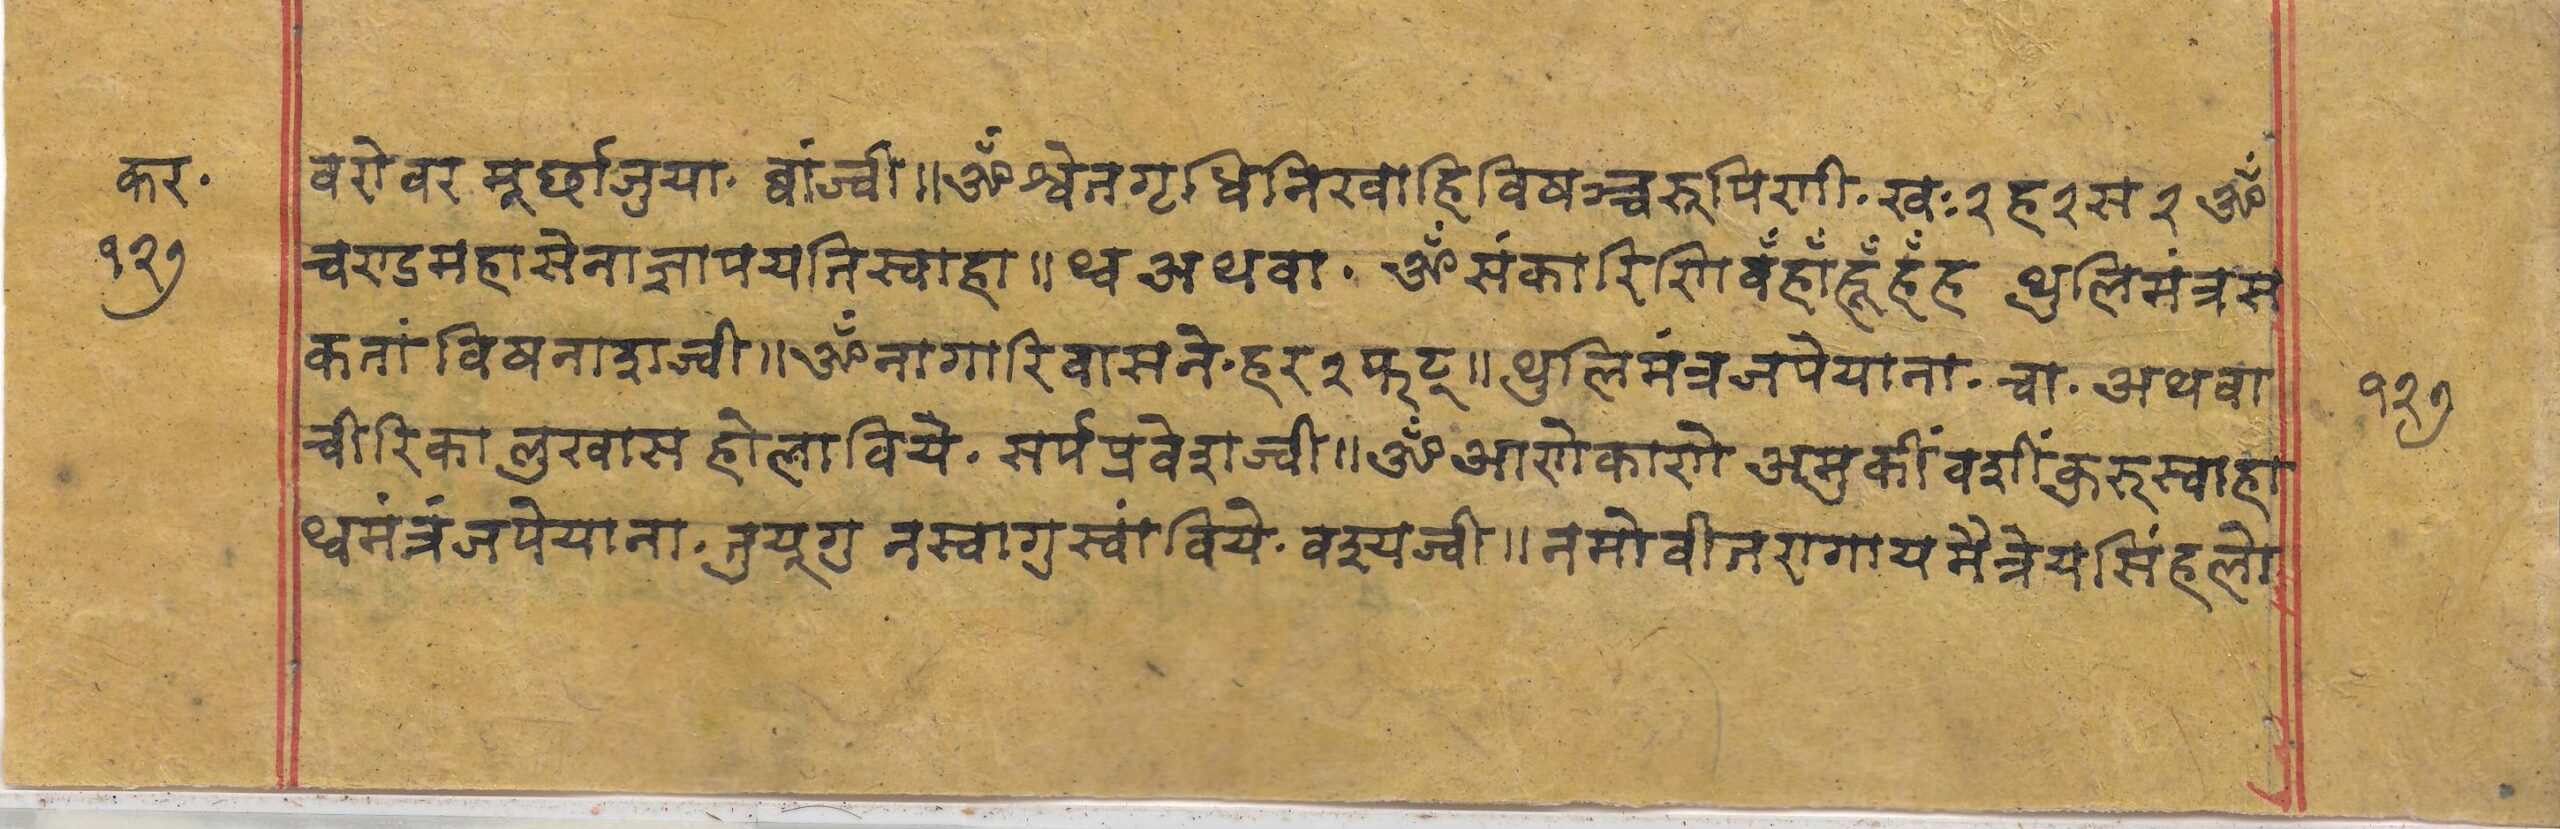 कर.
१२७
वरोवर मूर्छाजुया. बांज्वी॥ ॐ श्वेनगृध्रिनिरवाहिविषञ्चरूपिणी. खः२ ह२ स२ ॐ
चराडमहासेनाज्ञापयनिस्वाहा॥ थ्व अथवा. ॐ संकारिणि वँ हाँ हूँ हँ ह थुलिमंत्रस
कनां विषनाशज्वी॥ ॐ नागारिवासने. हर२ फट्॥ थुलिमंत्रजपेयाना. चा. अथवा
चीरिका लुखास होलाविये. सर्पप्रवेशज्वी॥ ॐ आरोकारो अमुकीं वशीं कुरूस्वाहा
थ्वमंत्रंजपेयाना. नुयूगु नस्वागु स्वांविये. वश्यज्वी॥ नमोवीतरागाय मैत्रेयसिंहलो
१२७